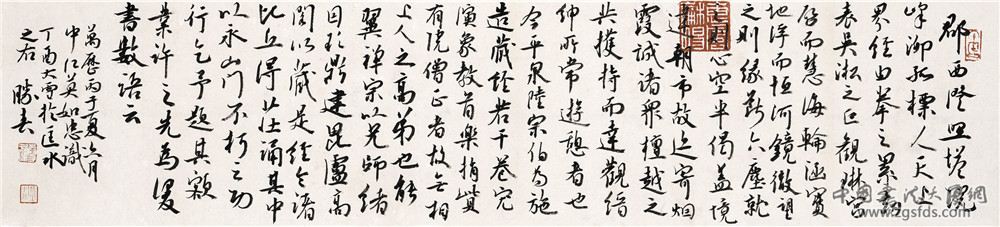 郡西澄照塔院
峰泖孤標人天上
界經由拳之累
表吳淞之巨觀琳宮
而慧海輪涵寶
地浮而恒河鏡徹望
之則緣斷六塵就
之則心空半偈蓋境
連朝市故迹寄烟
霞誠諸眾檀越之
共擭持而達觀緇
仲所常遊憩者也
今平泉陸宗伯為施
造藏經若干卷完
演象教首樂捐貲
有院僧正者故無相
上人之高弟也能
翼禪宗以兄師緒
因於鼎建毘盧高
閣以藏是經令諸
比丘得莊誦其中
以永山門不朽之功
行乞予題其額
業許之先為漫
書數語云
萬歷丙子夏六月
中江莫如忠識
丁酉大雪於匡水
之右 勝春
www.zgsfds.com